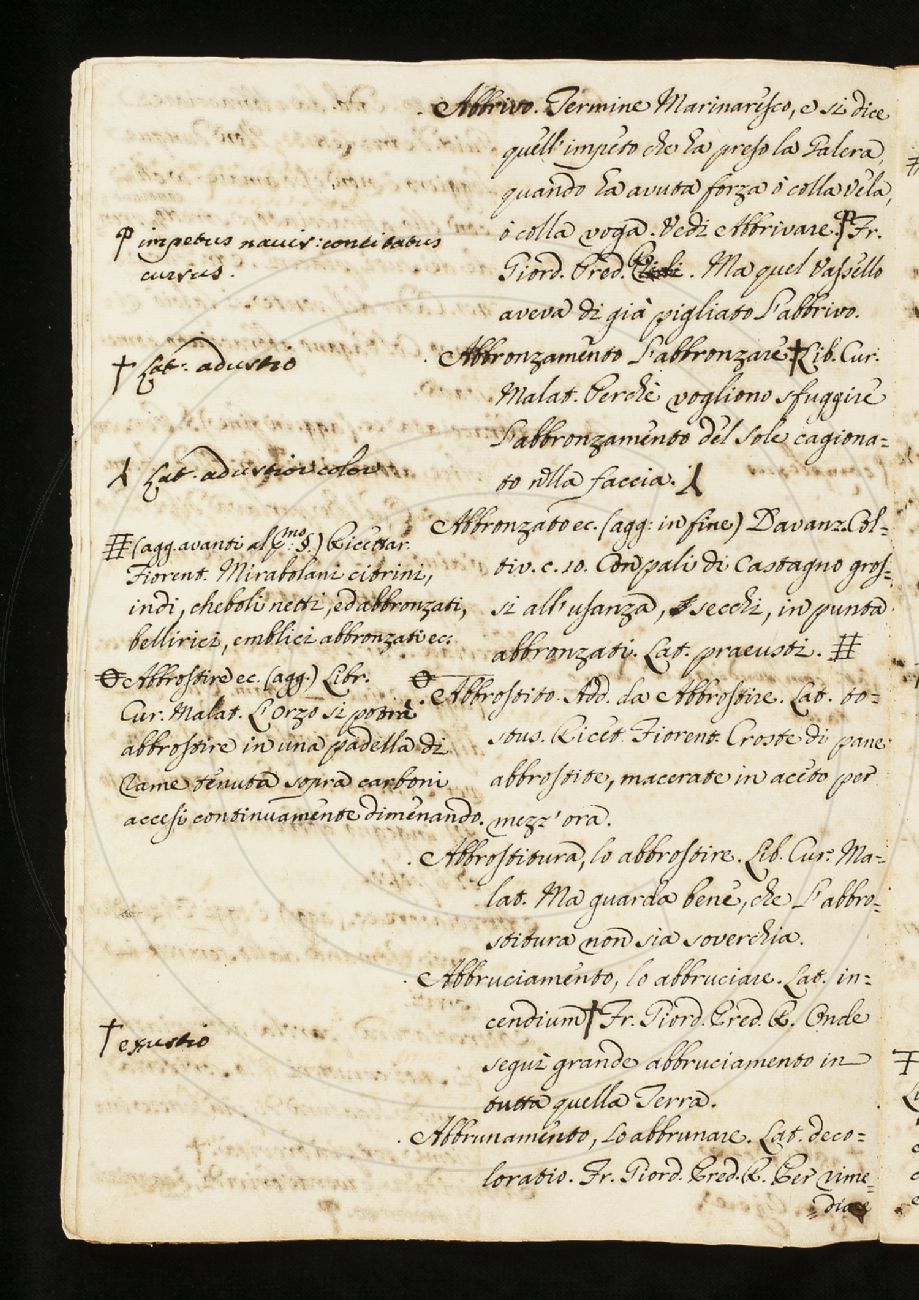 Abbrivo. Termine Marinaresco, e si dice
quell'impeto che ha preso la Galera,
quando ha avuta forza ò colla vela,
ò colla voga. Vedi Abbrivare. ⳨ Fr.
Giord. Pred. Ma quel Vassello
aveva di già pigliato l'abbrivo.
⳨ impetus navis: concitatus
cursus.
Abbronzamento L'abbronzare † Lib. Cur.
Malat. Perchè vogliono sfuggire
l'abbronzamento del sole cagiona=
to nella faccia. ⅄
† Lat. adustio
⅄ Lat. adustior color
Abbronzato ec. (agg: in fine) Davanz. Col=
tiv. c. 10. Con pali di Castagno gros=
si all'usanza, secchi, in punta
abbronzati. Lat. praeusti. #
# (agg. avanti al pmo. §.) Ricettar.
Fiorent. Mirabolani citrini,
indi, cheboli netti, ed abbronzati,
bellirici, emblici abbronzati ec.
Abbrostire ec. (agg.) Libr.
Cur. Malat. L'orzo si potrà
abbrostire in una padella di
rame tenuta sopra carboni
accesi continuamente dimenando.
Abbrostito. Add. da Abbrostire. Lat. to=
stus. Ricet. Fiorent. Croste di pane
abbrostite, macerate in aceto per
mezz'ora.
Abbrostitura, lo abbrostire. Lib. Cur. Ma=
lat. Ma guarda bene, che l'abbro=
stitura non sia soverchia.
Abbruciamento, lo abbruciare. Lat. in=
cendium † Fr. Giord. Pred. R. Onde
seguì grande abbruciamento in
tutta quella Terra.
† exustio
Abbrunamento, lo abbrunare. Lat. deco=
loratio. Fr. Giord. Pred. R. Per rime=
=diare